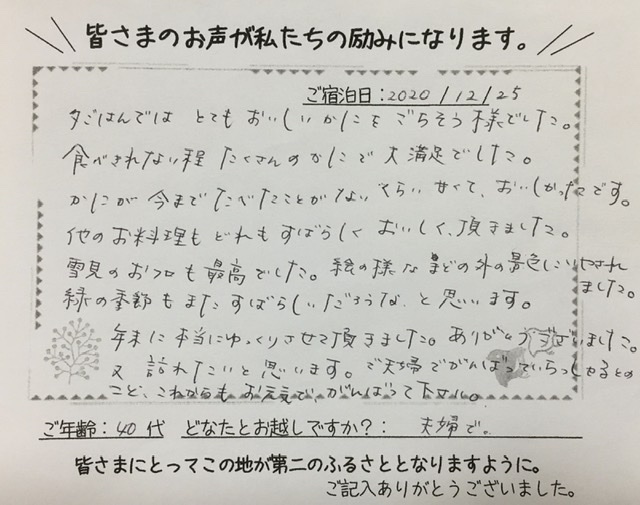 皆さまのお声が私たちの励みになります。
ご宿泊日：2020/12/25
夕ごはんでは とても おいしい かに を ごちそう様でした。
食べきれない程 たくさんのかにで大満足でした。
かにが今までたべたことがないくらい甘くて、おいしかったです。
他のお料理も どれも すばらしく おいしく、頂きました。
雪見のお風呂も最高でした。絵の様な まどの外の景色にいやされました。
緑の季節もまた すばらしいだろうな と思います。
年末に本当にゆっくりさせて頂きました。ありがとうございました。
又 訪れたいと思います。ご夫婦でがんばっていらっしゃるとの
こと、これからも お元気で がんばって下さい。
ご年齢：40代 どなたとお越しですか？： 夫婦で。
皆さまにとってこの地が第二のふるさととなりますように。
ご記入ありがとうございました。